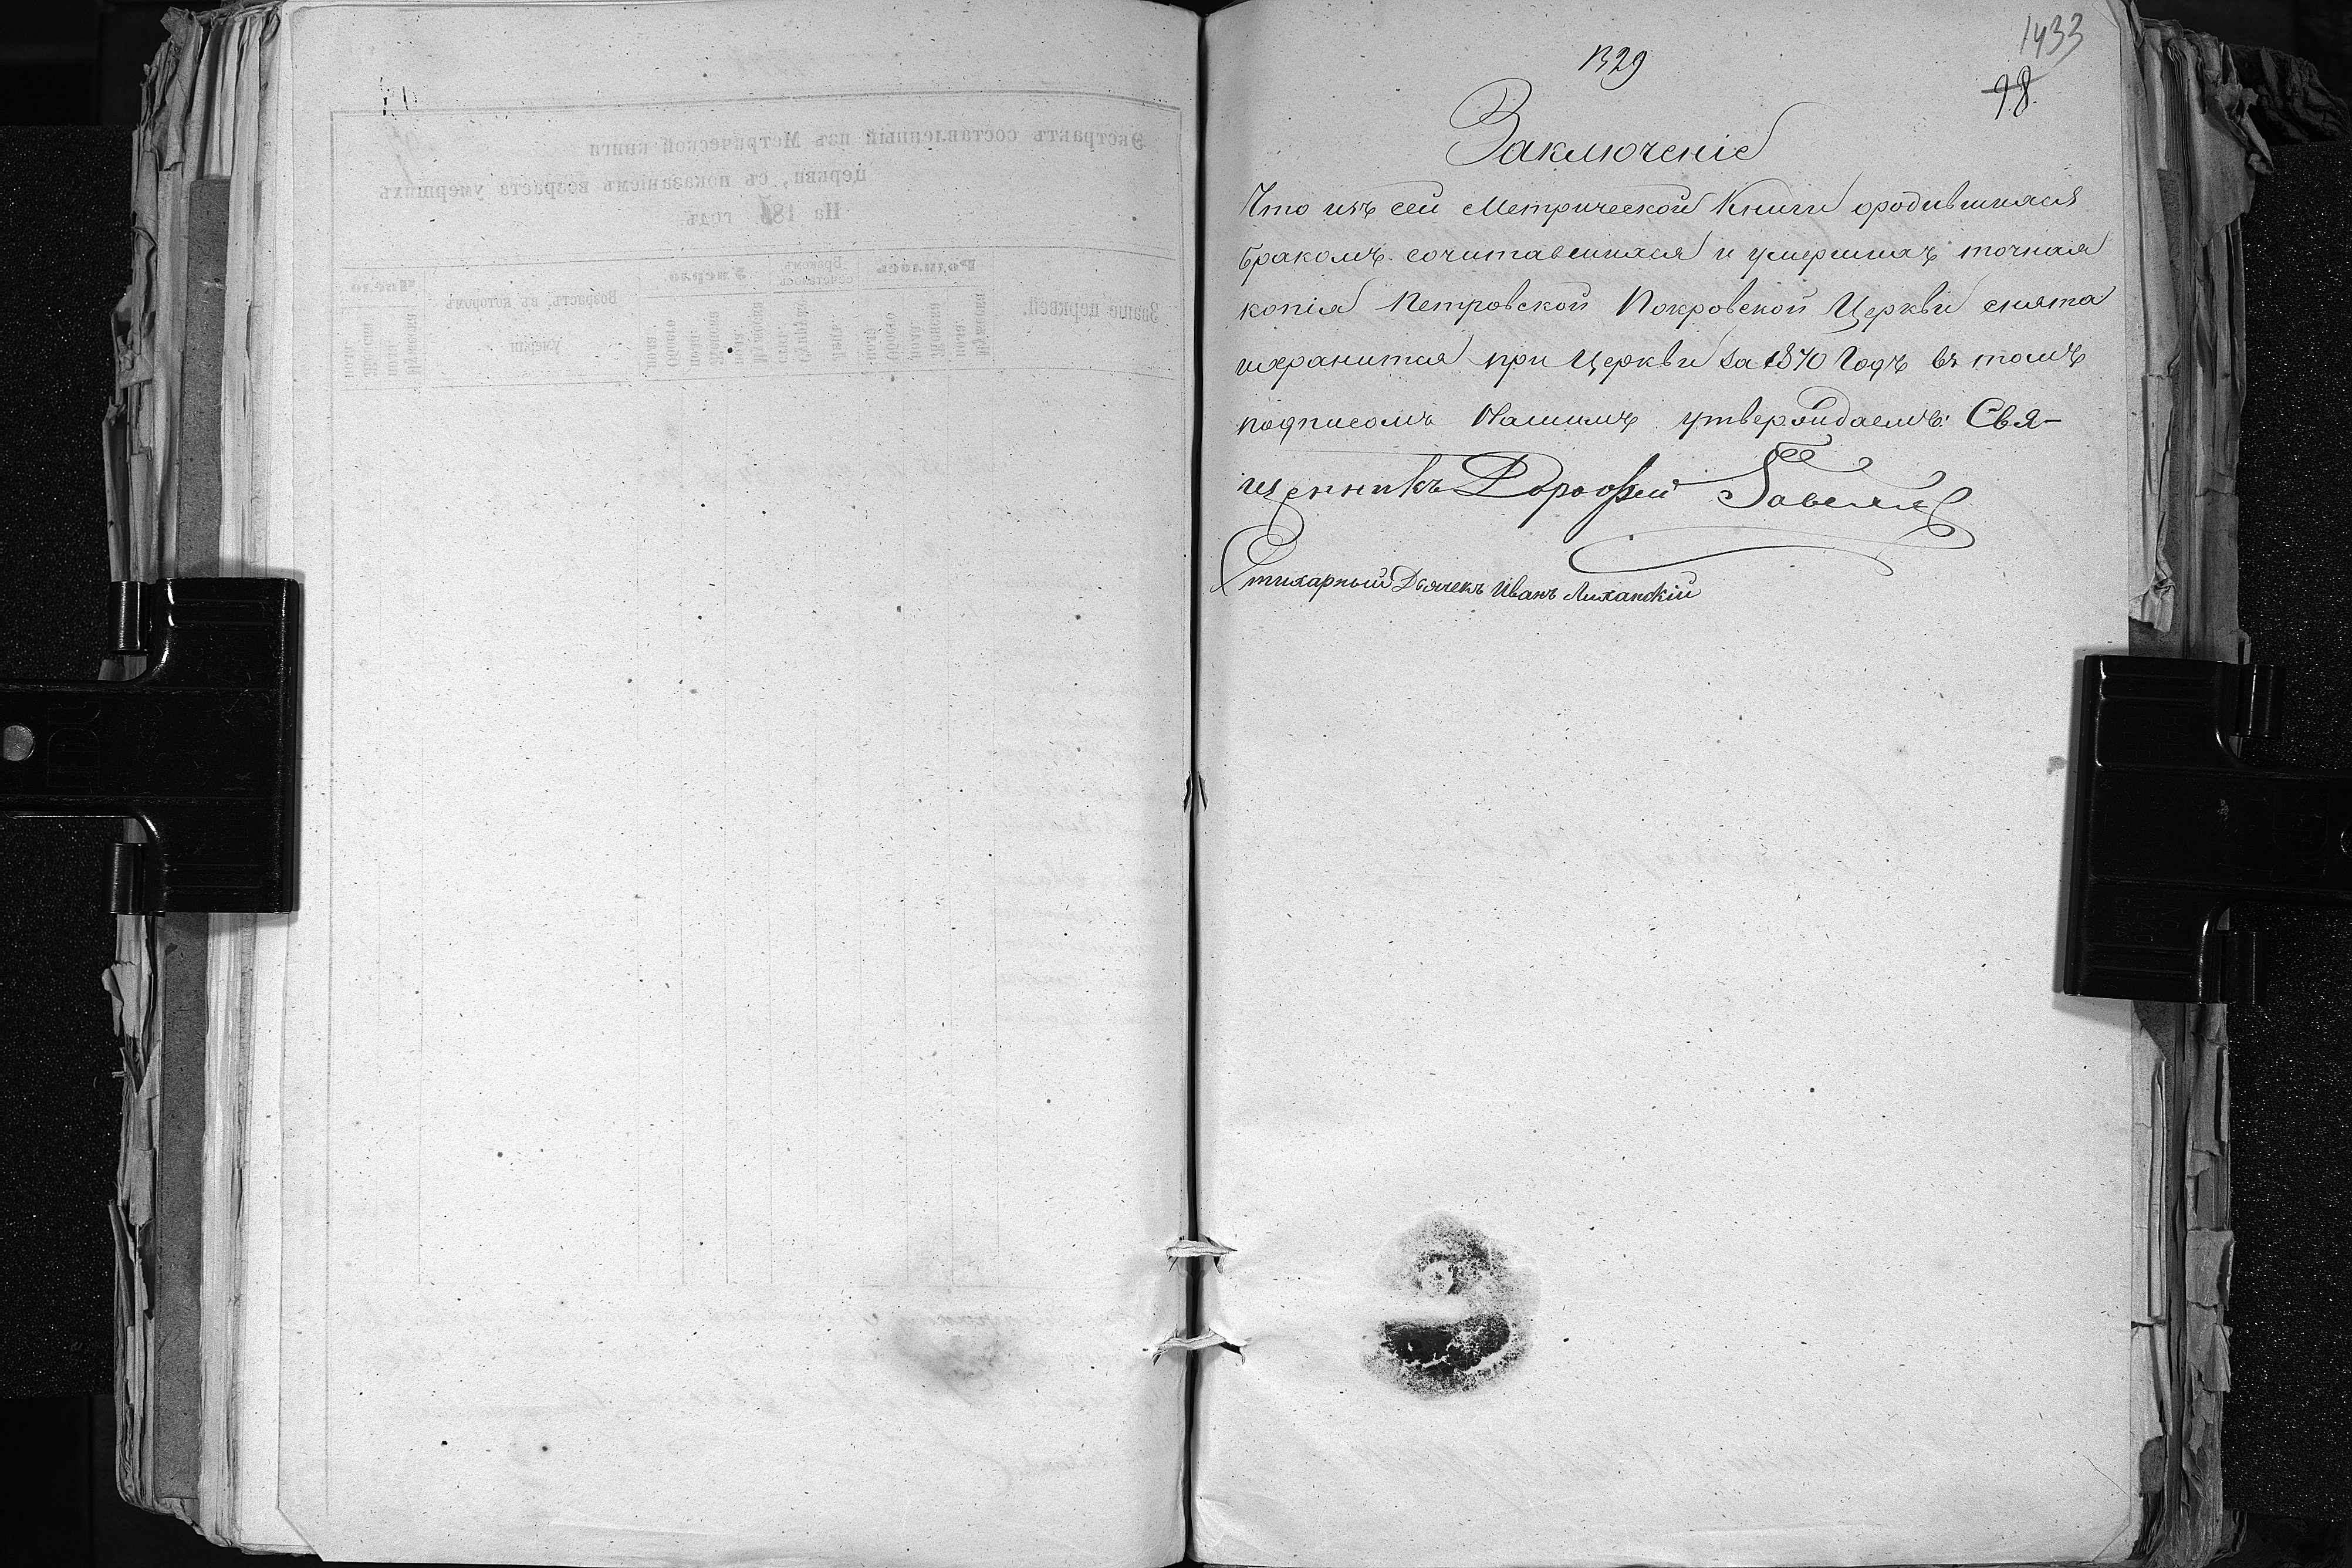 1329
1433
98.
Заключеніе
Что изъ сей Метрической Книги ородившихся
бракомъ сочитавшихся и умершихъ точная
копія Петровской Покровской Церкви снята
ихранится при Церкви за 1870 Годъ въ томъ
подписомъ Нашимъ утверждаемъ: Свя-
щенникъ Дорофей
Стихарный Дьячекъ Иванъ Лиханскій
Экстрактъ составленный изъ Метрической книги
церкви, съ показаніемъ возраста умершихъ
На 186 годъ
Званіе церквей.
Родилось
Бракомъ сочеталось
Умерло
Возрастъ, въ которомъ
умерли
Число